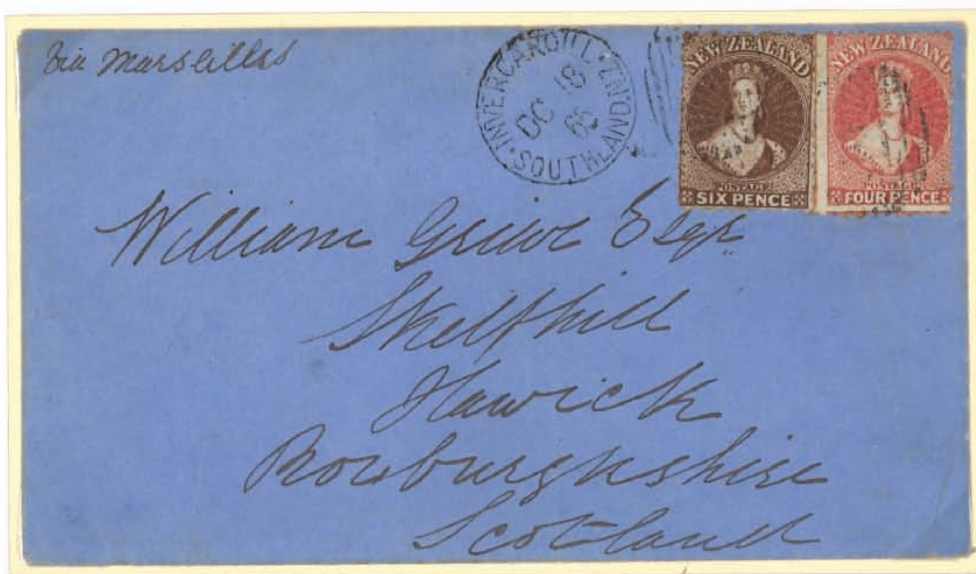 Via Marseilles
INVERCARGILL · SOUTHLAND. N.Z
18
DC
65
NEW ZEALAND
POSTAGE
SIX PENCE
NEW ZEALAND
POSTAGE
FOUR PENCE
William Grieve Esqr
Skelfhill
Hawick
Roxburghshire
Scotland